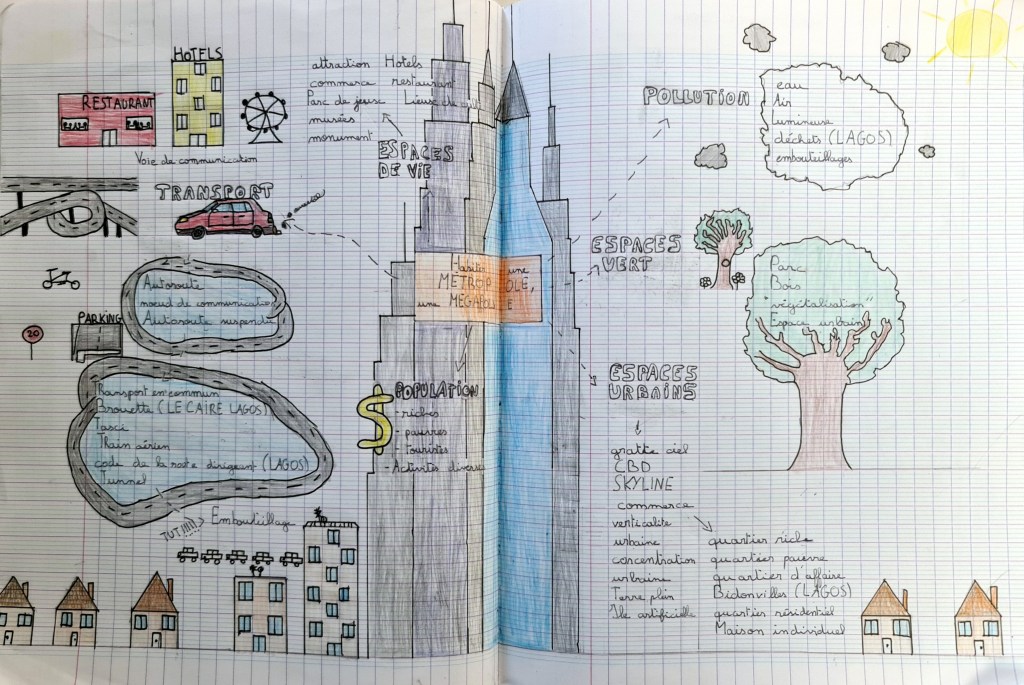 HOTELS
RESTAURANT
attraction Hotels
commerce restaurant
Parc de jeuse Lieuse de
musées
monument
ESPACES
DE VIE
Voie de communication
TRANSPORT
Autoroute
noeud de communication
Autoroute suspendu
PARKING
20
Transport en commun
Brouette (LE CAIRE LAGOS)
Taxi
Train aérien
code de la route dirigeant (LAGOS)
Tunnel
TUT!!!!
Embouteillage
Habiter une
MÉTROPOLE,
une MÉGAPOLE
POPULATION
- riches
- pauvres
- touristes
- Activités diverses
POLLUTION
eau
Air
Lumineuse
déchets (LAGOS)
embouteillages
ESPACES
VERT
Parc
Bois
"végétalisation"
Espaces urbains
ESPACES
URBAINS
gratte ciel
CBD
SKYLINE
commerce
verticalite
urbaine
concentration
urbaine
Terre plein
Ile artificielle
quartier riche
quartier pauvre
quartier d'affaire
Bidonvilles (LAGOS)
quartier résidentiel
Maison individuel